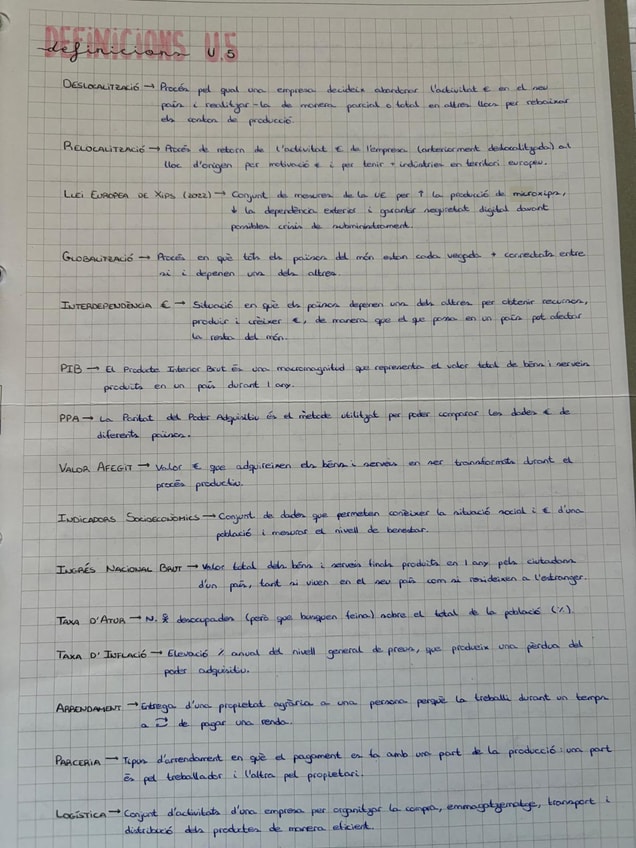 DEFINICIONS U.5
definicions U 5
DESLOCALITZACIÓ → Procés pel qual una empresa decideix abandonar l'activitat € en el seu
país i realitzar-la de manera parcial o total en altres llocs per rebaixar
els costos de producció.
RELOCALITZACIÓ → Procés de retorn de l'activitat € de l'empresa (anteriorment deslocalitzada) al
lloc d'origen per motivació € i per tenir + indústries en territori europeu.
LLEI EUROPEA DE XIPS (2022) → Conjunt de mesures de la UE per ↑ la producció de microxips,
↓ la dependència exterior i garantir seguretat digital davant
possibles crisis de subministrament.
GLOBALITZACIÓ → Procés en què tots els països del món estan cada vegada + connectats entre
si i depenen uns dels altres.
INTERDEPENDÈNCIA € → Situació en què els països depenen uns dels altres per obtenir recursos,
produir i créixer €, de manera que el que passa en un país pot afectar
la resta del món.
PIB → El Producte Interior Brut és una macromagnitud que representa el valor total de béns i serveis
produïts en un país durant 1 any.
PPA → La Paritat del Poder Adquisitiu és el mètode utilitzat per poder comparar les dades € de
diferents països.
VALOR AFEGIT → Valor € que adquireixen els béns i serveis en ser transformats durant el
procés productiu.
INDICADORS SOCIOECONÒMICS → Conjunt de dades que permeten conèixer la situació social i € d'una
població i mesurar el nivell de benestar.
INGRÉS NACIONAL BRUT → Valor total dels béns i serveis finals produïts en 1 any pels ciutadans
d'un país, tant si viuen en el seu país com si resideixen a l'estranger.
TAXA D'ATUR → N. desocupades (però que busquen feina) sobre el total de la població (%).
TAXA D'INFLACIÓ → Elevació % anual del nivell general de preus, que produeix una pèrdua del
poder adquisitiu.
ARRENDAMENT → Entrega d'una propietat agrària a una persona perquè la treballi durant un temps
a ⇄ de pagar una renda.
PARCERIA → Tipus d'arrendament en què el pagament es fa amb una part de la producció: una part
és pel treballador i l'altra pel propietari.
LOGÍSTICA → Conjunt d'activitats d'una empresa per organitzar la compra, emmagatzematge, transport i
distribució dels productes de manera eficient.